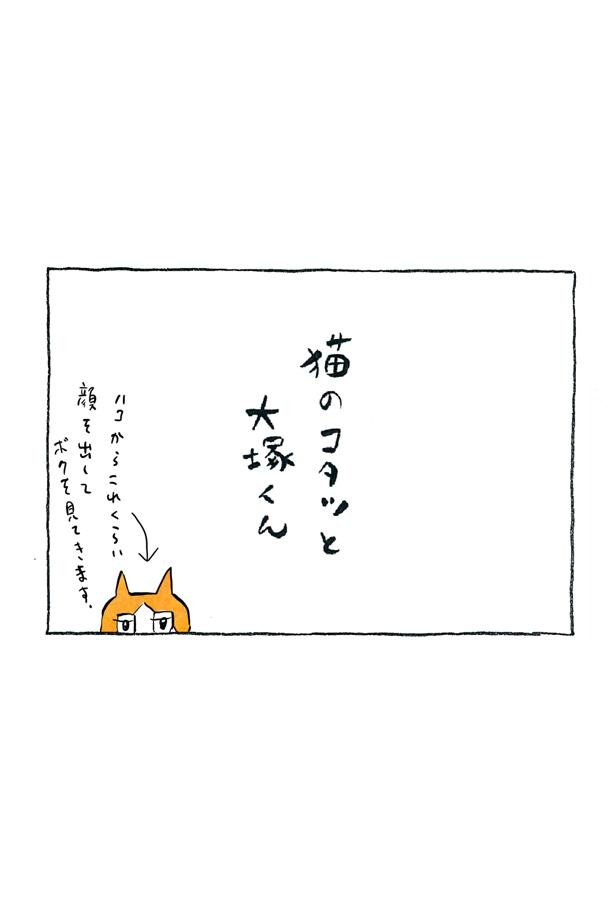 猫のコタツと
大塚くん
ハコからこれくらい
顔を出して
ボクを見てきます。